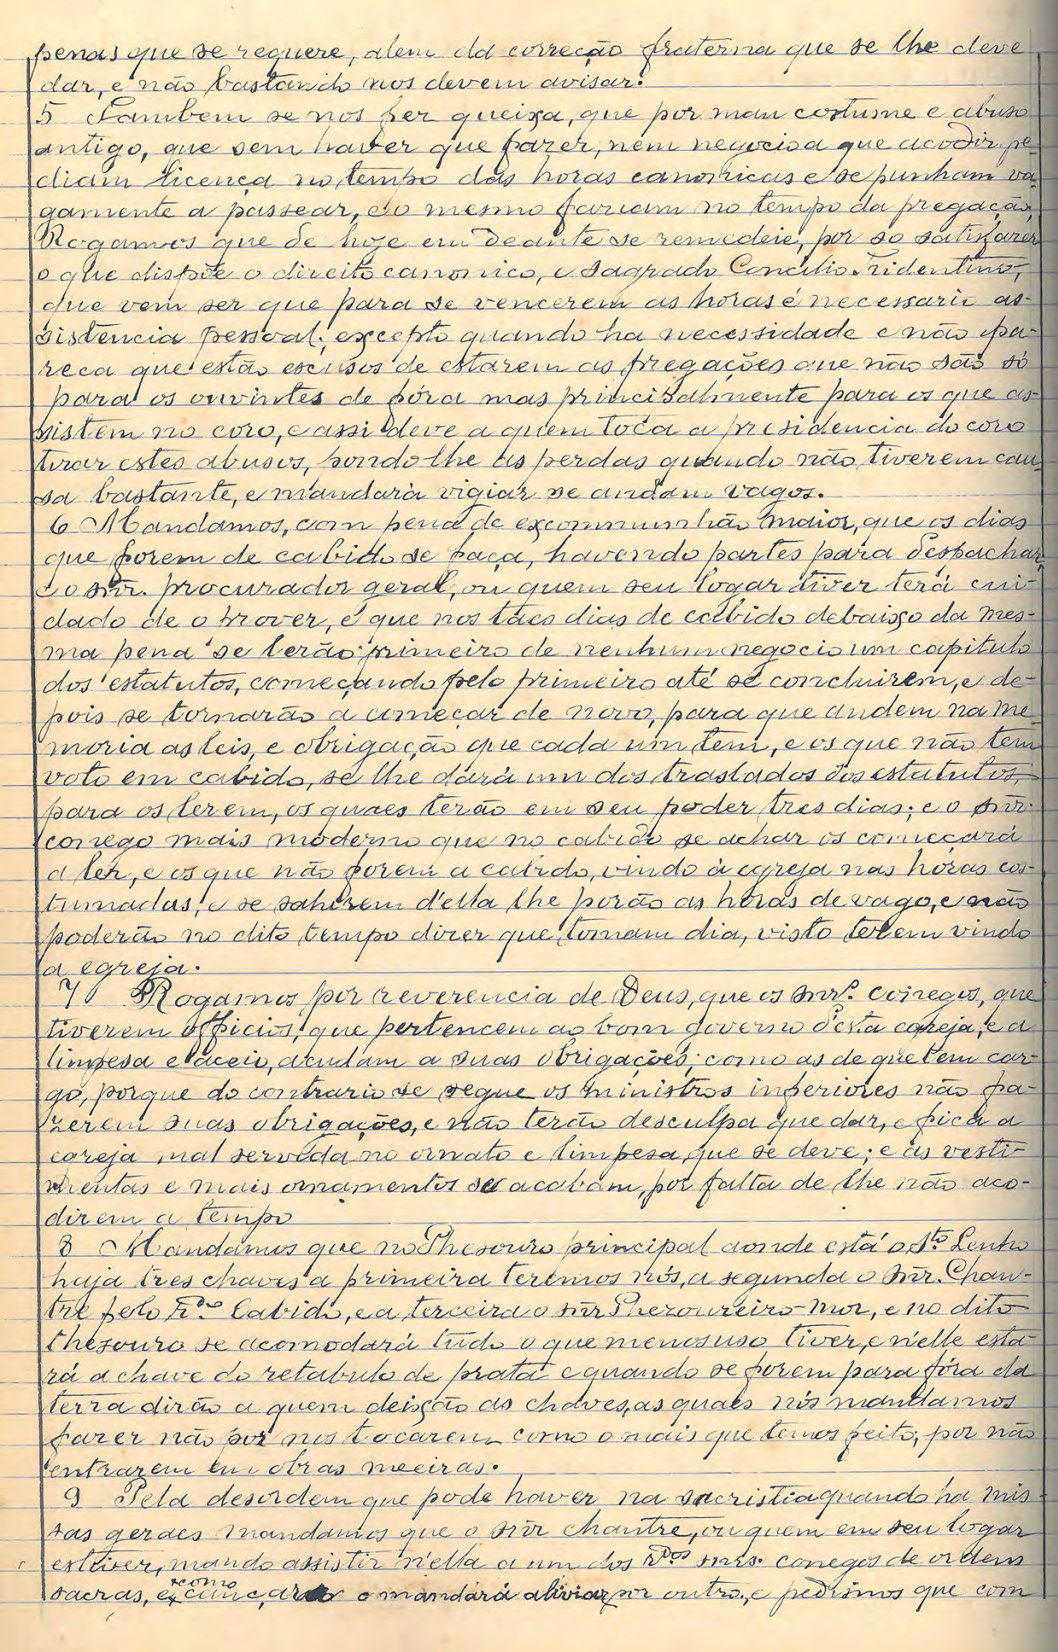 penas que se requere, alem da correção fraterna que se lhe deve
dar, e não bastando nos devem avisar.
5 Tambem se nos fez queixa, que por mau costume e abuso
antigo, que sem haver que fazer, nem negocio a que acodir pe-
diam licença no tempo das horas canonicas e se punham va-
gamente a passear, e o mesmo faziam no tempo da pregação,
Rogamos que de hoje em deante se remedeie, por so satisfazer
o que dispõe o direito canonico, e sagrado Concilio Tridentino,
que vem ser que para se vencerem as horas é necessario as-
sistencia pessoal; excepto quando ha necessidade e não pa-
reca que estão escusos de estarem as pregações que não são só
para os ouvintes de fóra mas principalmente para os que as-
sistem no coro, e assi deve a quem toca a presidencia do coro
tirar estes abusos, pondo-lhe as perdas quando não tiverem cau-
sa bastante, e mandará vigiar se andam vagos.
6 Mandamos, com pena de excommunhão maior, que os dias
que forem de cabido se faça, havendo partes para despachar,
e o snr. procurador geral, ou quem seu logar tiver terá cui-
dado de o prover, e que nos táes dias de cabido debaixo da mes-
ma pena se lerão primeiro de nenhum negocio um capitulo
dos estatutos, começando pelo primeiro até se concluirem, e de-
pois se tornarão a começar de novo, para que andem na me-
moria as leis, e obrigação que cada um tem, e os que não tem
voto em cabido, se lhe dará um dos traslados dos estatutos,
para os lerem, os quaes terão em seu poder tres dias; e o snr.
conego mais moderno que no cabido se achar os começará
a ler, e os que não forem a cabido, vindo á egreja nas horas cos-
tumadas, e se sahirem d'ella lhe porão as horas de vago, e não
poderão no dito tempo dizer que tomam dia, visto terem vindo
a egreja.
7 Rogamos por reverencia de Deus, que os snr.s conegos, que
tiverem officios, que pertencem ao bom governo desta egreja, e a
limpesa e aceio, acudam a suas obrigações; como as de que tem car-
go, porque do contrario se segue os ministros inferiores não fa-
zerem suas obrigações, e não terão desculpa que dar, e fica a
egreja mal servida no ornato e limpesa, que se deve; e as vesti-
mentas e mais ornamentos se acabam, por falta de lhe não aco-
direm a tempo
8 Mandamos que no Thesouro principal aonde está o Sto Lenho
haja tres chaves a primeira teremos nós, a segunda o snr. Chan-
tre pelo Rdo Cabido, e a terceira o snr Thezoureiro-Mor, e no dito
thesouro se acomodará tudo o que menos uso tiver, e n'elle esta-
rá a chave do retabulo de prata e quando se forem para fóra da
terra dirão a quem deixão as chaves, as quaes nós mandamos
fazer não por nos tocarem como o mais que temos feito, por não
entrarem em obras meeiras.
9 Pela desordem que pode haver na sacristia quando há mis-
sas geraes mandamos que o snr chantre, ou quem em seu logar
estiver, mande assistir n'ella a um dos Rdos snrs. conegos de ordens
sacras, e como o mandará aliviar por outro, e pedimos que com